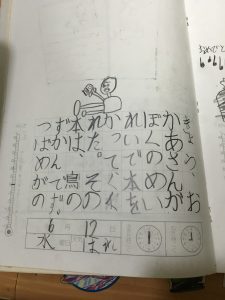 きょう、お
かあさんが
ぼくのめいが
れいで本を
かってくく
れた。その
本は、鳥の
ずかんです。
つばめがの
6月12日
水 はれ